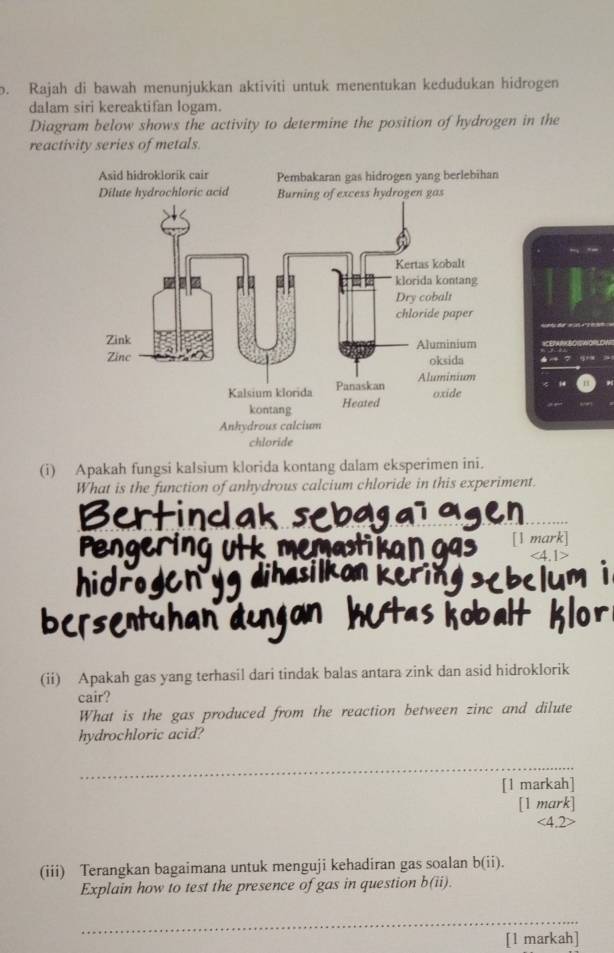 b. Rajah di bawah menunjukkan aktiviti untuk menentukan kedudukan hidrogen
dalam siri kereaktifan logam.
Diagram below shows the activity to determine the position of hydrogen in the
reactivity series of metals.
Asid hidroklorik cair
Dilute hydrochloric acid
Pembakaran gas hidrogen yang berlebihan
Burning of excess hydrogen gas
Kertas kobalt
klorida kontang
Dry cobalt
chloride paper
Zink
Zinc
Aluminium
oksida
Aluminium
oxide
Kalsium klorida
kontang
Anhydrous calcium
chloride
Panaskan
Heated
(i) Apakah fungsi kalsium klorida kontang dalam eksperimen ini.
What is the function of anhydrous calcium chloride in this experiment.
Bertindak sebagai agen
Pengering utk memastikan gas
[1 mark]
<4.1>
hidrogen yg dihasilkan kering sebelum i
bersentuhan dengan kertas kobalt klor
(ii) Apakah gas yang terhasil dari tindak balas antara zink dan asid hidroklorik
cair?
What is the gas produced from the reaction between zinc and dilute
hydrochloric acid?
[1 markah]
[1 mark]
<4.2>
(iii) Terangkan bagaimana untuk menguji kehadiran gas soalan b(ii).
Explain how to test the presence of gas in question b(ii).
[1 markah]